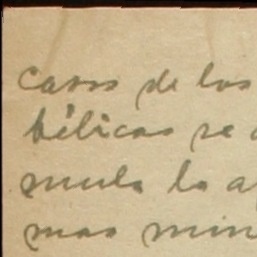 casos de los
bélicas se
mula la a
mas min